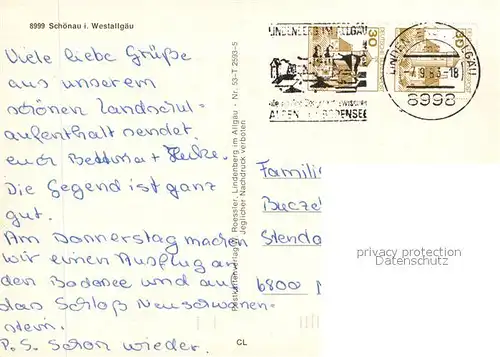 8999 Schönau i. Westallgäu
Viele liebe Grüße
aus unserem
schönen Landschul-
aufenthalt sendet
euch Bettina + Heike.
Die Gegend ist ganz
gut.
Am Donnerstag machen
wir einen Ausflug an
den Bodosee und auf
das Schloß Neuschwanen-
stein.
P.S. Schon wieder.
Postkartenverlag W. Roessler, Lindenberg im Allgäu - Nr. 53-T 2593-5
Jeglicher Nachdruck verboten
CL
LINDENBERG IM ALLGÄU
ALPEN BODENSEE
30
30
LINDENBERG ALLGÄU
9.83-18
8998
Familie
Buczel
Stenda
6800
privacy protection
Datenschutz